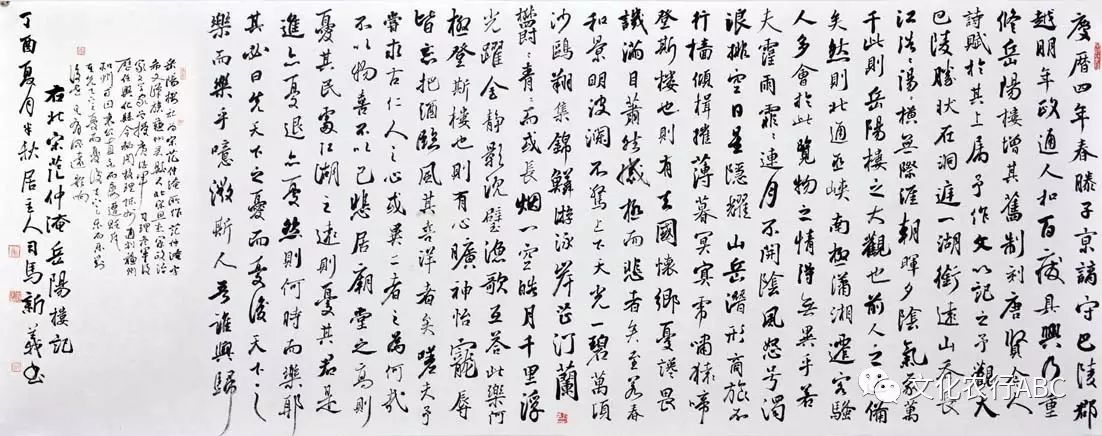 慶曆四年春滕子京謫守巴陵郡
越明年政通人和百废具興乃重
修岳陽樓增其舊制刻唐賢今人
詩賦於其上属予作文以記之予觀夫
巴陵勝狀在洞庭一湖銜遠山吞長
江浩〻湯〻橫無際涯朝暉夕陰氣象萬
千此則岳陽樓之大觀也前人之述備
矣然則北通巫峽南極瀟湘遷客騷
人多會於此覽物之情得無異乎若
夫霪雨霏〻連月不開陰風怒号濁
浪排空日星隱耀山岳潛形商旅不
行檣傾楫摧薄暮冥冥虎嘯猿啼
登斯樓也則有去國懷鄉憂讒畏
譏滿目蕭然感極而悲者矣至若春
和景明波瀾不驚上下天光一碧萬頃
沙鷗翔集錦鱗游泳岸芷汀蘭
鬱〻青〻而或長烟一空皓月千里浮
光躍金静影沉璧漁歌互答此樂何
極登斯樓也則有心曠神怡寵辱
皆忘把酒臨風其喜洋〻者矣嗟夫予
嘗求古仁人之心或異二者之為何哉
不以物喜不以己悲居廟堂之高則
憂其民處江湖之遠則憂其君是
進亦憂退亦憂然則何時而樂耶
其必曰先天下之憂而憂後天下之
樂而樂乎噫微斯人吾誰與歸
右北宋范仲淹岳陽樓記
丁酉夏月半秋居主人司馬新義书
文化农行ABC